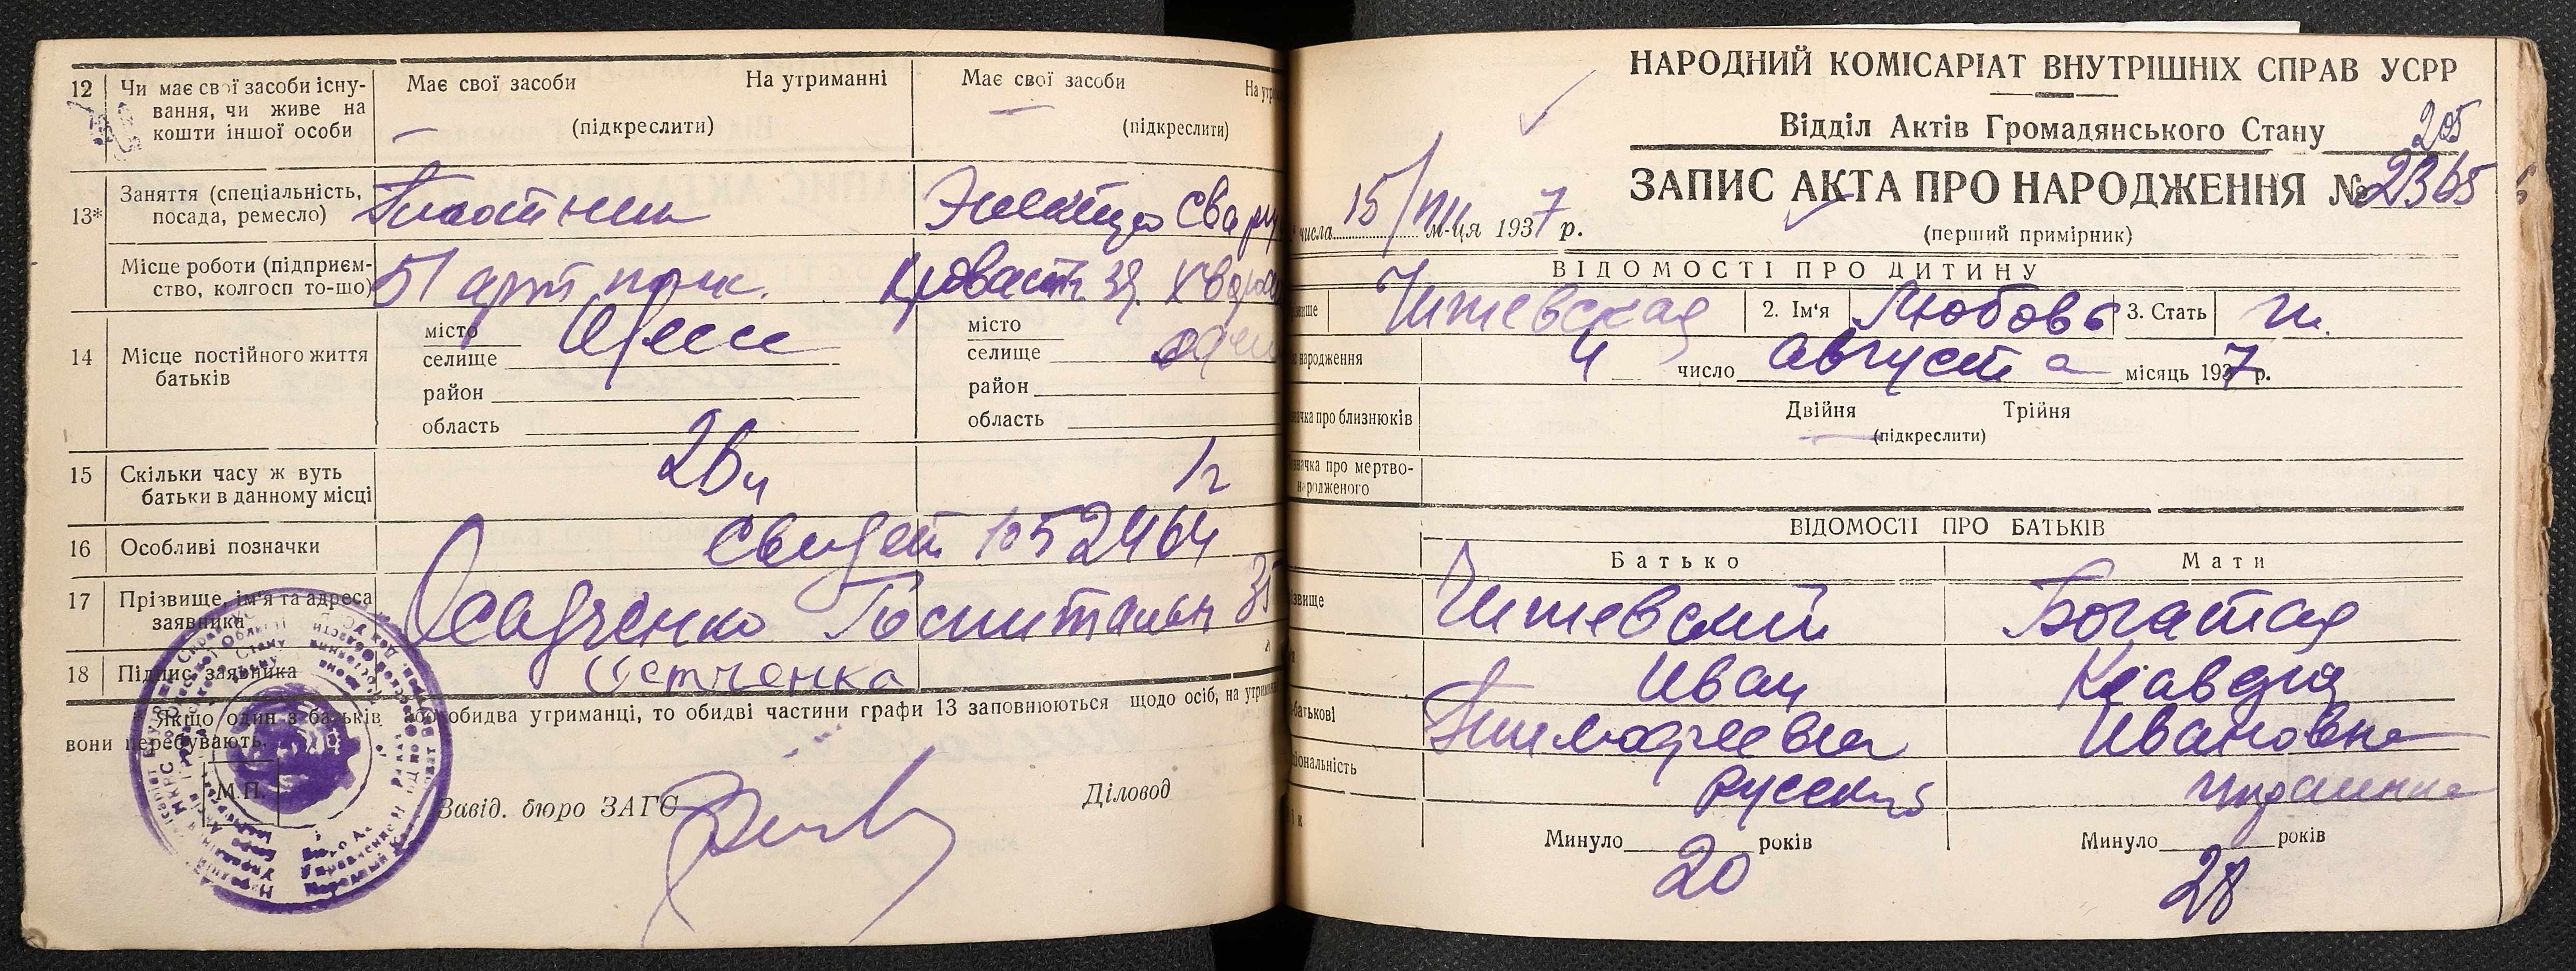 12 Чи має свої засоби існу- Має свої засоби На утриманні Має свої засоби На
вання, чи живе на
кошти іншої особи (підкреслити) (підкреслити)
— —
13* Заняття (спеціальність,
посада, ремесло) Плотник Электро свар
Місце роботи (підприєм-
ство, колгосп то-що) 51 арт полк.
14 Місце постійного життя
батьків
місто Одесса місто
селище селище
район район
область область
15 Скільки часу ж вуть
батьки в данному місці 1 г
16 Особливі позначки Свидет 1052464
17 Прізвище, ім'я та адреса
заявника Осадченко Госпитальн 35
18 Підпис заявника
* Якщо один з батьків або обидва утриманці, то обидві частини графи 13 заповнюються щодо осіб, на
вони перебувають.
М.П.
Завід. бюро ЗАГС Діловод
НАРОДНИЙ КОМІСАРІАТ ВНУТРІШНІХ СПРАВ УСРР
Відділ Актів Громадянського Стану
205
ЗАПИС АКТА ПРО НАРОДЖЕННЯ № 2365
числа 15/VIII м-ця 1937 р.
(перший примірник)
ВІДОМОСТІ ПРО ДИТИНУ
Чижевская 2. Ім'я Любовь 3. Стать ж.
народження 4 число августа місяць 1937 р.
про близнюків Двійня Трійня
(підкреслити)
про мертво-
народженого
ВІДОМОСТІ ПРО БАТЬКІВ
Батько Мати
Чижевский Богатая
Иван Клавдия
батькові Тимофеевич Ивановна
русский украинка
Минуло 20 років Минуло 28 років